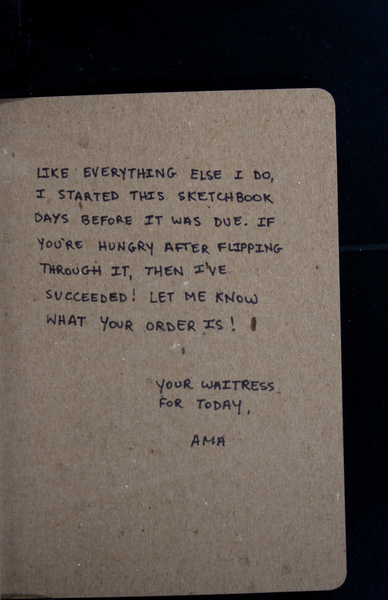 LIKE EVERYTHING ELSE I DO,
I STARTED THIS SKETCHBOOK
DAYS BEFORE IT WAS DUE. IF
YOU'RE HUNGRY AFTER FLIPPING
THROUGH IT, THEN I'VE
SUCCEEDED! LET ME KNOW
WHAT YOUR ORDER IS!
YOUR WAITRESS
FOR TODAY,
AMA